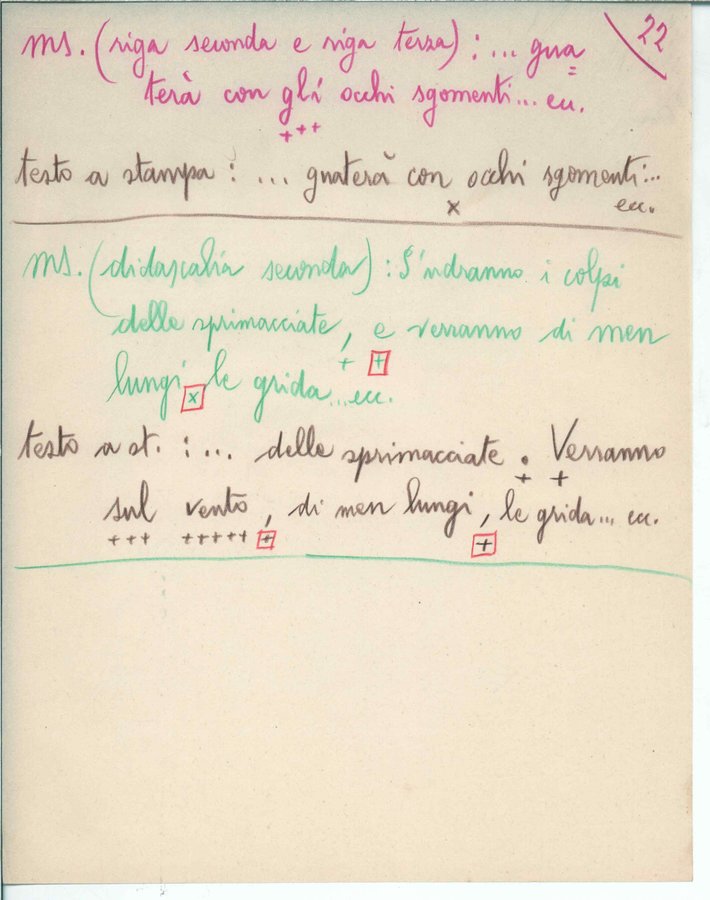 22
ms. (riga seconda e riga terza) : ... gua=
terà con gli occhi sgomenti... ecc.
+++
testo a stampa : ... guaterà con occhi sgomenti...
x ecc.
ms. (didascalia seconda) : S'udranno i colpi
delle sprimacciate, e verranno di men
+ +
lungi le grida...ecc.
x
testo a st. : ... delle sprimacciate. Verranno
+ +
sul vento, di men lungi, le grida... ecc.
+++ +++++ + +